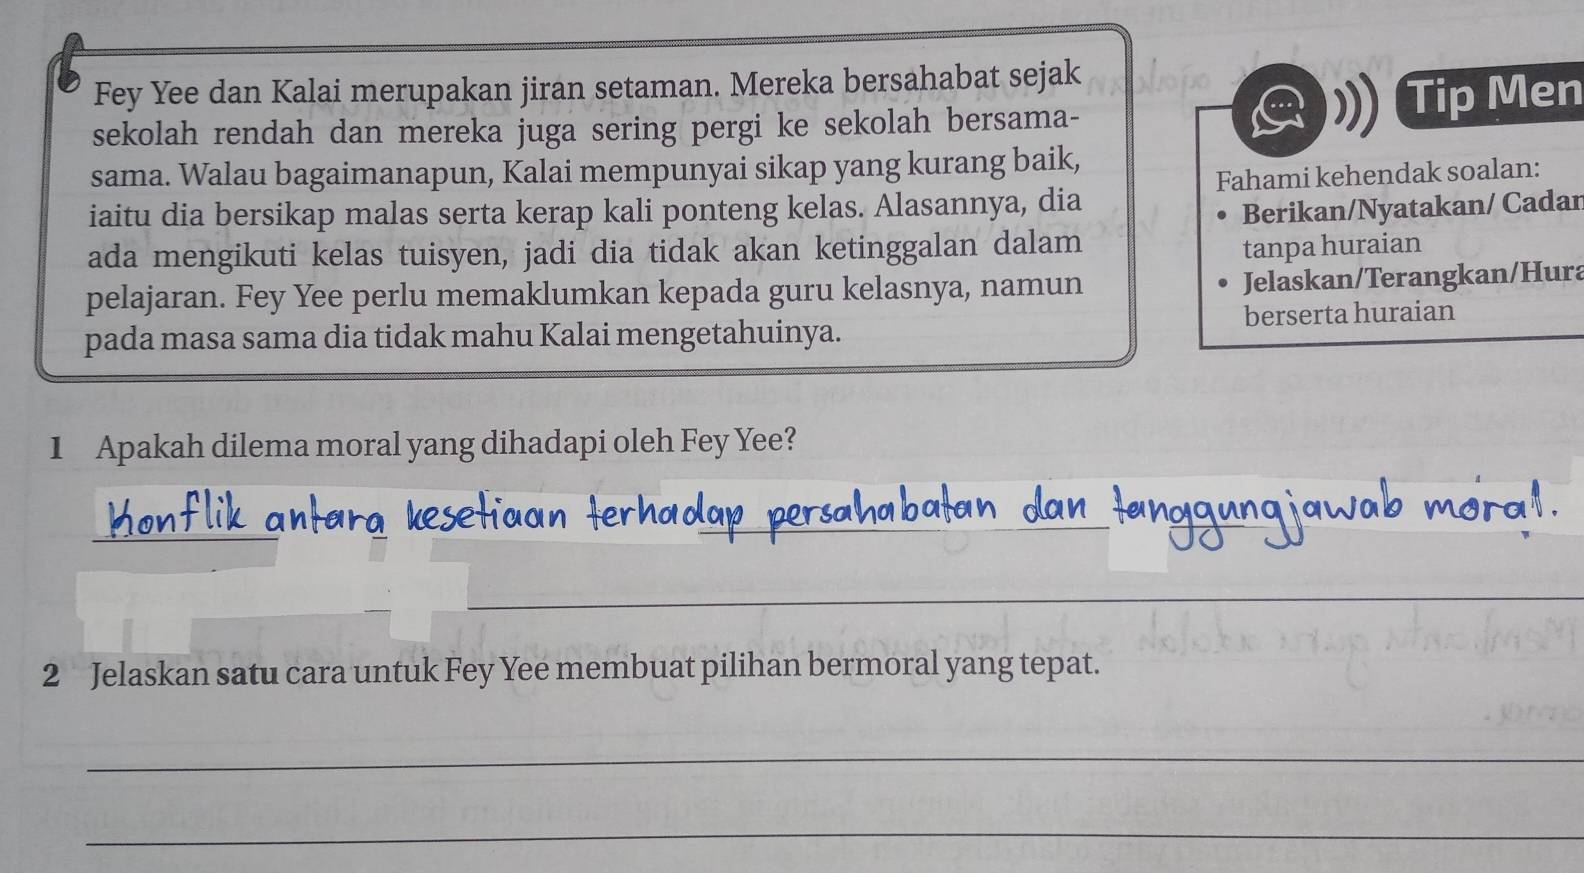 Fey Yee dan Kalai merupakan jiran setaman. Mereka bersahabat sejak
sekolah rendah dan mereka juga sering pergi ke sekolah bersama-
sama. Walau bagaimanapun, Kalai mempunyai sikap yang kurang baik,
iaitu dia bersikap malas serta kerap kali ponteng kelas. Alasannya, dia
ada mengikuti kelas tuisyen, jadi dia tidak akan ketinggalan dalam
pelajaran. Fey Yee perlu memaklumkan kepada guru kelasnya, namun
pada masa sama dia tidak mahu Kalai mengetahuinya.
Tip Men
Fahami kehendak soalan:
• Berikan/Nyatakan/ Cadan
tanpa huraian
• Jelaskan/Terangkan/Hura
berserta huraian
1 Apakah dilema moral yang dihadapi oleh Fey Yee?
Konflik antara kesetiaan terhadap persahabatan dan tanggungjawab moral.
2 Jelaskan satu cara untuk Fey Yee membuat pilihan bermoral yang tepat.